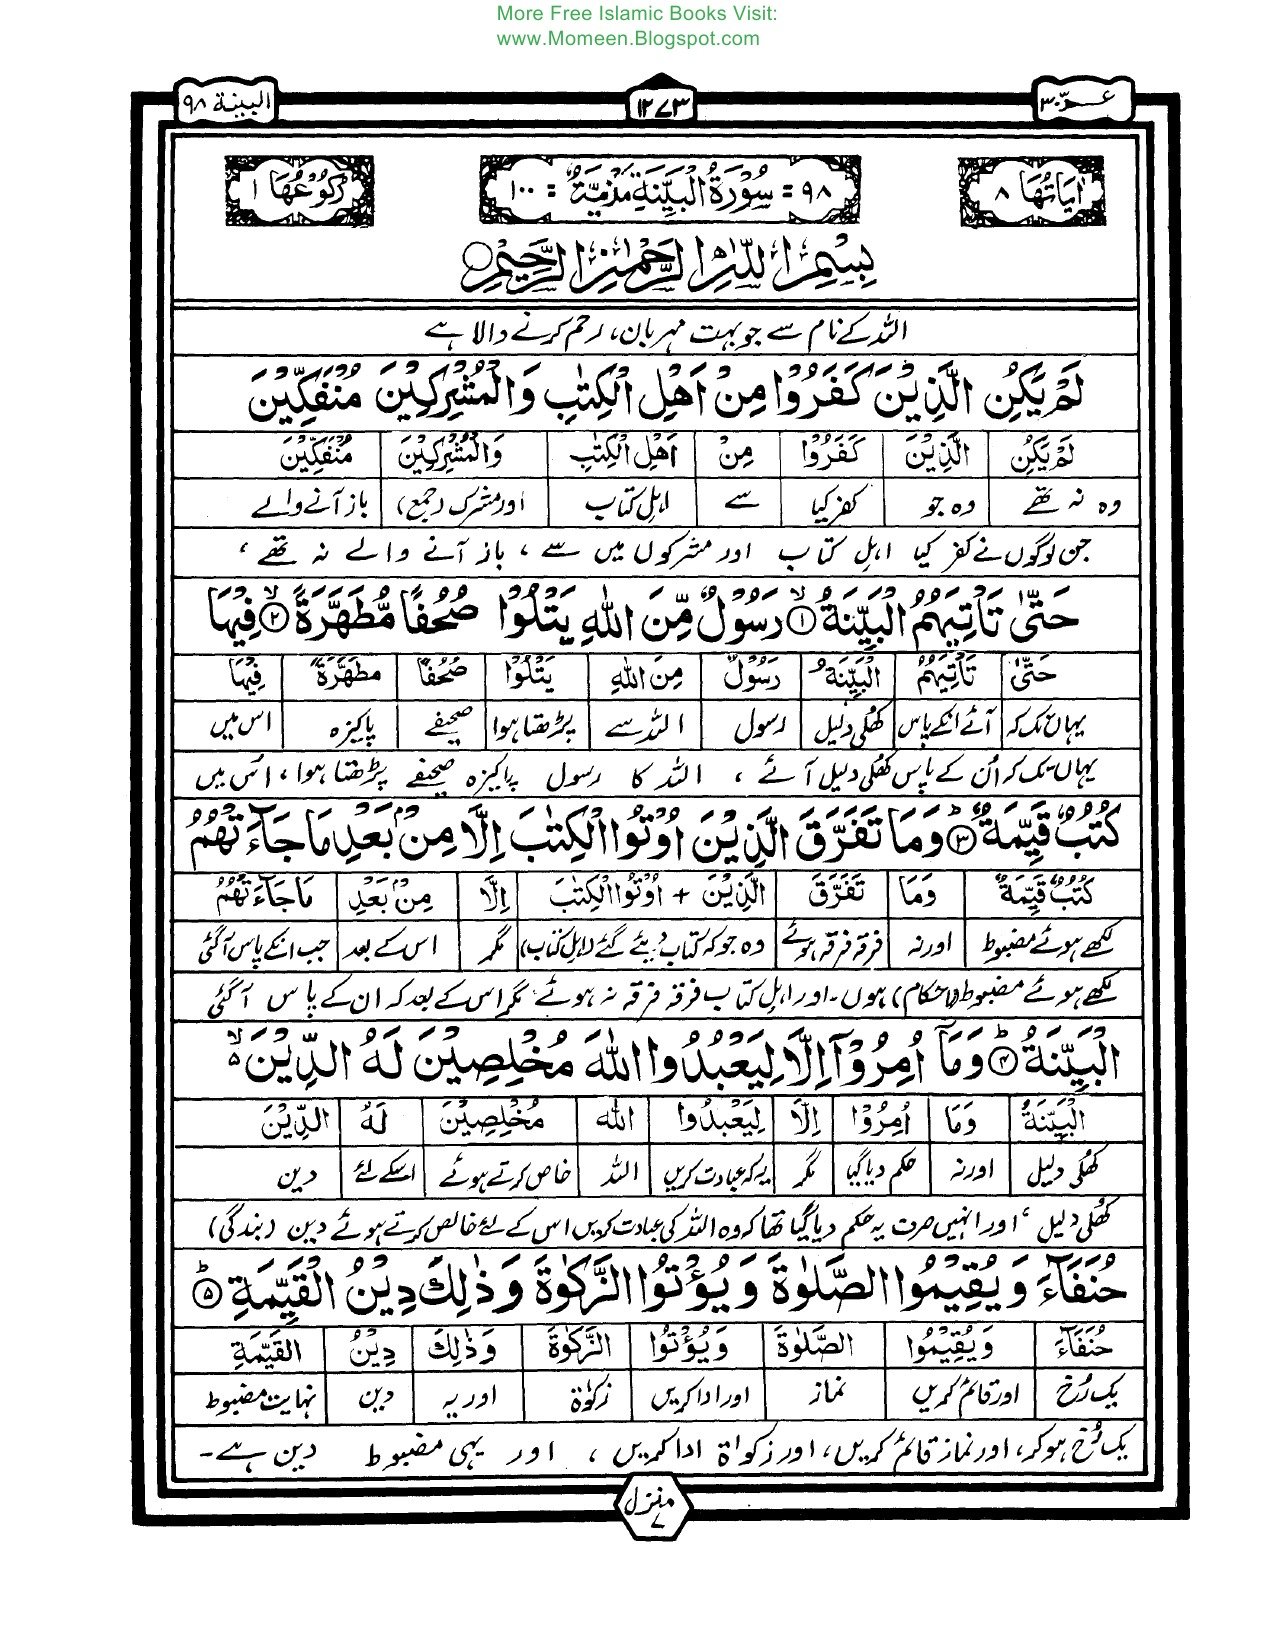 More Free Islamic Books Visit:
www.Momeen.Blogspot.com
عـــمّ ٣٠
١٢٧٣
البينة ٩٨
اٰيَاتُهَا ٨
٩٨ = سُوْرَةُ الْبَيِّنَةِ مَدَنِيَّةٌ = ١٠٠
رُكُوْعُهَا ١
بِسْمِ اللّٰهِ الرَّحْمٰنِ الرَّحِيْمِ
اللہ کے نام سے جو بہت مہربان، رحم کرنے والا ہے
لَمْ يَكُنِ الَّذِيْنَ كَفَرُوْا مِنْ اَهْلِ الْكِتٰبِ وَالْمُشْرِكِيْنَ مُنْفَكِّيْنَ
لَمْ يَكُنِ الَّذِيْنَ كَفَرُوْا مِنْ اَهْلِ الْكِتٰبِ وَالْمُشْرِكِيْنَ مُنْفَكِّيْنَ
وہ نہ تھے وہ جو کفر کیا سے اہلِ کتاب اور مشرک (جمع) باز آنے والے
جن لوگوں نے کفر کیا اہلِ کتاب اور مشرکوں میں سے ، باز آنے والے نہ تھے ،
حَتّٰى تَاْتِيَهُمُ الْبَيِّنَةُ ۙ﴿۱﴾ رَسُوْلٌ مِّنَ اللّٰهِ يَتْلُوْا صُحُفًا مُّطَهَّرَةً ۙ﴿۲﴾ فِيْهَا
حَتّٰى تَاْتِيَهُمُ الْبَيِّنَةُ رَسُوْلٌ مِنَ اللّٰهِ يَتْلُوْا صُحُفًا مُطَهَّرَةً فِيْهَا
یہاں تک کہ آئے انکے پاس کھلی دلیل رسول اللہ سے پڑھتا ہوا صحیفے پاکیزہ اس میں
یہاں تک کہ اُن کے پاس کھلی دلیل آئے ، اللہ کا رسول پاکیزہ صحیفے پڑھتا ہوا، اُس میں
كُتُبٌ قَيِّمَةٌ ؕ﴿۳﴾ وَمَا تَفَرَّقَ الَّذِيْنَ اُوْتُوا الْكِتٰبَ اِلَّا مِنْۢ بَعْدِ مَا جَآءَتْهُمُ
كُتُبٌ قَيِّمَةٌ وَمَا تَفَرَّقَ الَّذِيْنَ + اُوْتُوا الْكِتٰبَ اِلَّا مِنْۢ بَعْدِ مَا جَآءَتْهُمُ
لکھے ہوئے مضبوط اور نہ فرقہ فرقہ ہوئے وہ جو کہ کتاب دیئے گئے (اہل کتاب) مگر اس کے بعد جب انکے پاس آگئی
لکھے ہوئے مضبوط (احکام) ہوں۔ اور اہلِ کتاب فرقہ فرقہ نہ ہوئے مگر اس کے بعد کہ ان کے پاس آگئی
الْبَيِّنَةُ ؕ﴿۴﴾ وَمَآ اُمِرُوْٓا اِلَّا لِيَعْبُدُوا اللّٰهَ مُخْلِصِيْنَ لَهُ الدِّيْنَ ۙ۵
الْبَيِّنَةُ وَمَا اُمِرُوْا اِلَّا لِيَعْبُدُوا اللّٰهَ مُخْلِصِيْنَ لَهُ الدِّيْنَ
کھلی دلیل اور نہ حکم دیا گیا مگر یہ کہ عبادت کریں اللہ خاص کرتے ہوئے اسکے لئے دین
کھلی دلیل ، اور انہیں صرف یہ حکم دیا گیا تھا کہ وہ اللہ کی عبادت کریں اس کے لئے خالص کرتے ہوئے دین (بندگی)
حُنَفَآءَ وَيُقِيْمُوا الصَّلٰوةَ وَيُؤْتُوا الزَّكٰوةَ وَذٰلِكَ دِيْنُ الْقَيِّمَةِ ؕ﴿۵﴾
حُنَفَآءَ وَيُقِيْمُوا الصَّلٰوةَ وَيُؤْتُوا الزَّكٰوةَ وَذٰلِكَ دِيْنُ الْقَيِّمَةِ
یک رُخ اور قائم کریں نماز اور ادا کریں زکوٰۃ اور یہ دین نہایت مضبوط
یک رُخ ہو کر، اور نماز قائم کریں، اور زکواۃ ادا کریں ، اور یہی مضبوط دین ہے۔
منزل
۷